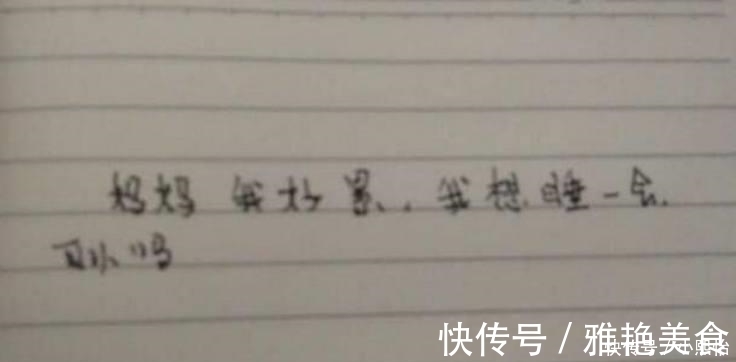 妈妈 我好累..我想睡一会.
可以吗
快传号 / 雅艳美食